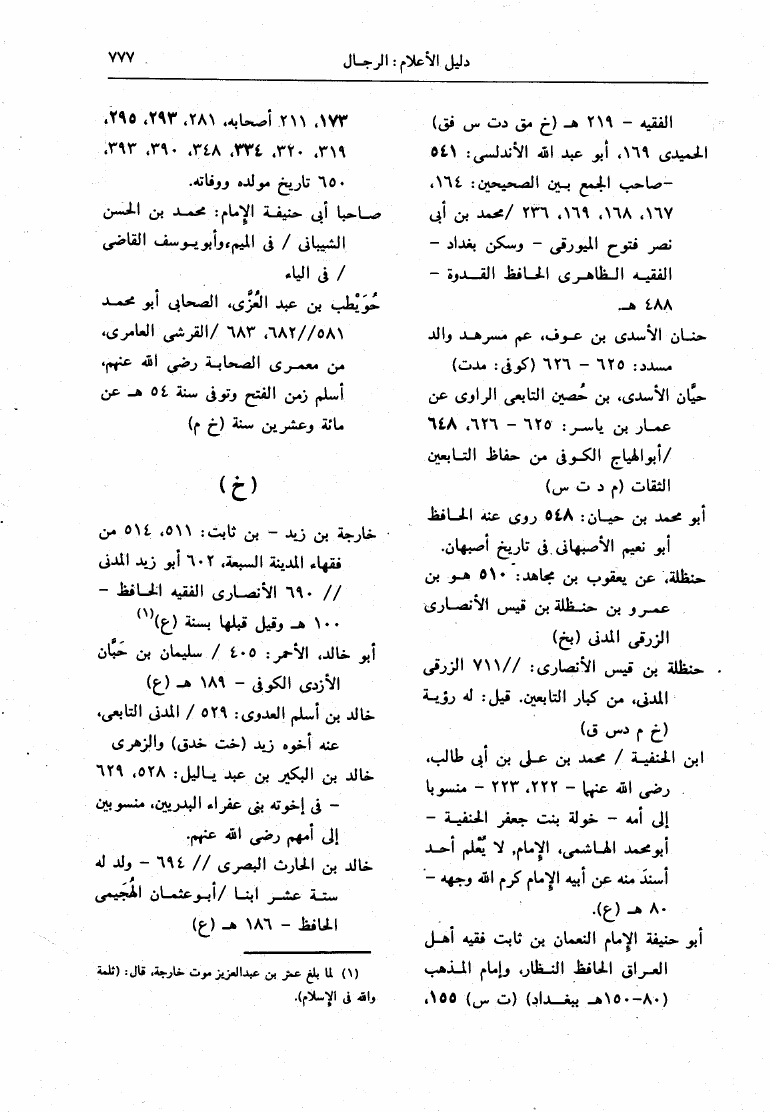 دليل الأعلام : الرجـال
٧٧٧
الفقيه – ٢١٩ هـ (خ مق دت س فق)
الحميدى ١٦٩، أبو عبد الله الأندلسى: ٥٤١
–صاحب الجمع بـين الصحيحين: ١٦٤،
١٦٧، ١٦٨، ١٦٩، ٢٣٦ /محمد بن أبى
نصر فتوح الميورقى – وسكن بغداد –
الفقيـه الـظاهـرى الحـافظ القـدوة –
٤٨٨ هـ
حنـان الأسدى بن عـوف، عم مسرهـد والد
مسدد: ٦٢٥ – ٦٢٦ (كوفى: مدت)
حيَّان الأسدى، بن حُصين التابعى الراوى عن
عمـار بن ياسـر: ٦٢٥ – ٦٢٦، ٦٤٨
/أبوالهياج الكـوفى من حفاظ التـابعين
الثقات (م د ت س)
أبو محمد بن حيـان: ٥٤٨ روى عنه الحـافظ
أبو نعيم الأصبهانى فى تاريخ أصبهان.
حنظلة، عن يعقوب بن مجاهد: ٥١٠ هـو بن
عمـرو بن حنـظلة بن قيس الأنصـارى
الزرقى المدنى (بخ)
حنظلة بن قيس الأنصارى: //٧١١ الزرقى
المدنى، من كبار التابعين. قيل: له رؤيـة
(خ م دس ق)
ابن الحنفيـة / محمد بن عـلى بن أبى طالب،
رضى الله عنهما – ٢٢٢، ٢٢٣ – منسوبا
إلى أمه – خولة بنت جعفر الحنفيـة –
أبومحمد الهـاشمى، الإمام, لا يُعْلم أحـد
أسندَ منه عن أبيه الإمام كرم الله وجهه –
٨٠ هـ (ع).
أبو حنيفة الإمام النعمان بن ثابت فقيه أهـل
العـراق الحافظ النـظار، وإمام المـذهب
(٨٠–١٥٠هـ ببغـداد) (ت س) ١٥٥،
١٧٣، ٢١١ أصحابه، ٢٨١، ٢٩٣، ٢٩٥،
٣١٩، ٣٢٠، ٣٣٤، ٣٤٨، ٣٩٠، ٣٩٣،
٦٥٠ تاريخ مولده ووفاته.
صاحبا أبى حنيفـة الإمام: محمـد بن الحسن
الشيبانى / فى الميم، وأبويـوسف القاضى
/ فى الياء
حُوَيْطب بن عبد العُزَّى، الصحابى أبو محمـد
٥٨١//٦٨٢، ٦٨٣ /القرشى العامرى،
من معمـرى الصحابـة رضى الله عنهم،
أسلم زمن الفتح وتوفى سنة ٥٤ هـ عن
مائة وعشرين سنة (خ م)
(خ)
خارجة بن زيد – بن ثابت: ٥١١، ٥١٤ من
فقهاء المدينة السبعة، ٦٠٢ أبو زيد المدنى
// ٦٩٠ الأنصـارى الفقيه الحـافظ –
١٠٠ هـ وقيل قبلها بسنة (ع)(١)
أبو خالد، الأحمر: ٤٠٥ / سليمان بن حَبَّان
الأزدى الكوفى – ١٨٩ هـ (ع)
خالد بن أسلم العدوى: ٥٢٩ / المدنى التابعى،
عنه أخوه زيد (خت خدق) والزهرى
خالد بن البكير بن عبد يـاليل: ٥٢٨، ٦٢٩
– فى إخوته بنى عفراء البدريين، منسوبين
إلى أمهم رضى الله عنهم.
خالد بن الحارث البصرى // ٦٩٤ – ولد له
ستـة عشـر ابنـا /أبـوعثمـان الهُجَيمى
الحافظ – ١٨٦ هـ (ع)
(١) لما بلغ عمر بن عبدالعزيز موت خارجة، قال: (ثلمة
والله فى الإسلام).